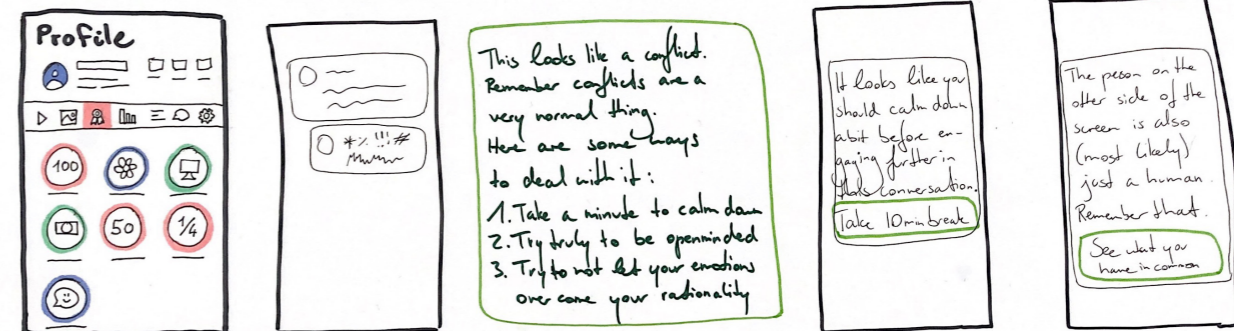 Profile
100
50
1/4
*% !!! #
This looks like a conflict.
Remember conflicts are a
very normal thing.
Here are some ways
to deal with it:
1. Take a minute to calm down
2. Try truly to be openminded
3. Try to not let your emotions
overcome your rationality
It looks like you
should calm down
a bit before en-
gaging further in
this conversation.
Take 10 min break
The person on the
other side of the
screen is also
(most likely)
just a human.
Remember that.
See what you
have in common